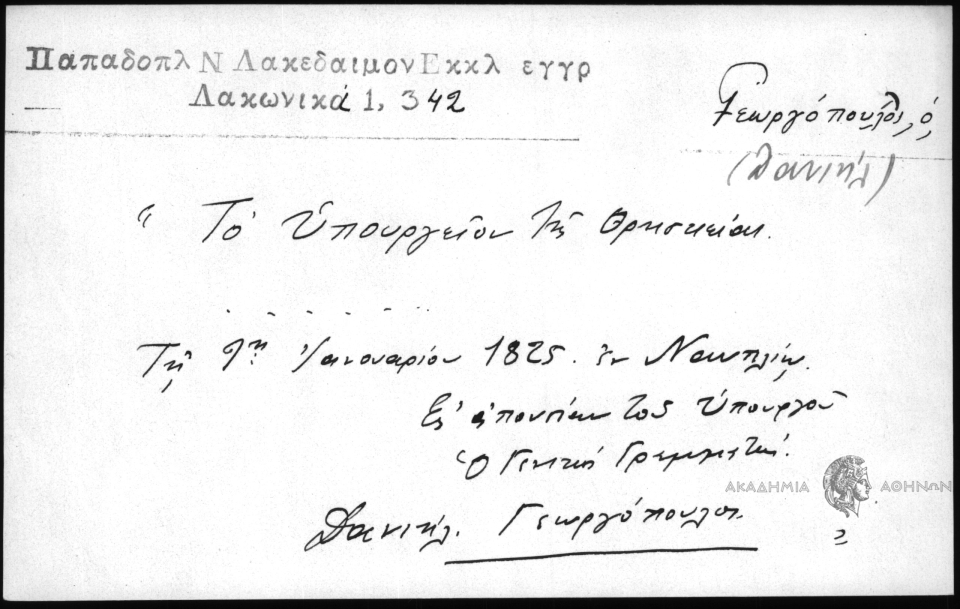 Παπαδοπλ Ν Λακεδαιμον Εκκλ εγγρ
Λακωνικά 1, 342
Γεωργόπουλος, ὁ,
(Δανιήλ)
" Τὸ Ὑπουργεῖον τῆς Θρησκείας.
. . . . . .
Τῇ 9ῃ Ἰανουαρίου 1825. ἐν Ναυπλίῳ.
Ἐξ ἀπουσίας τοῦ Ὑπουργοῦ
Ὁ Γενικὸς Γραμματεύς.
Δανιήλ. Γεωργόπουλος.
ΑΚΑΔΗΜΙΑ ΑΘΗΝΩΝ